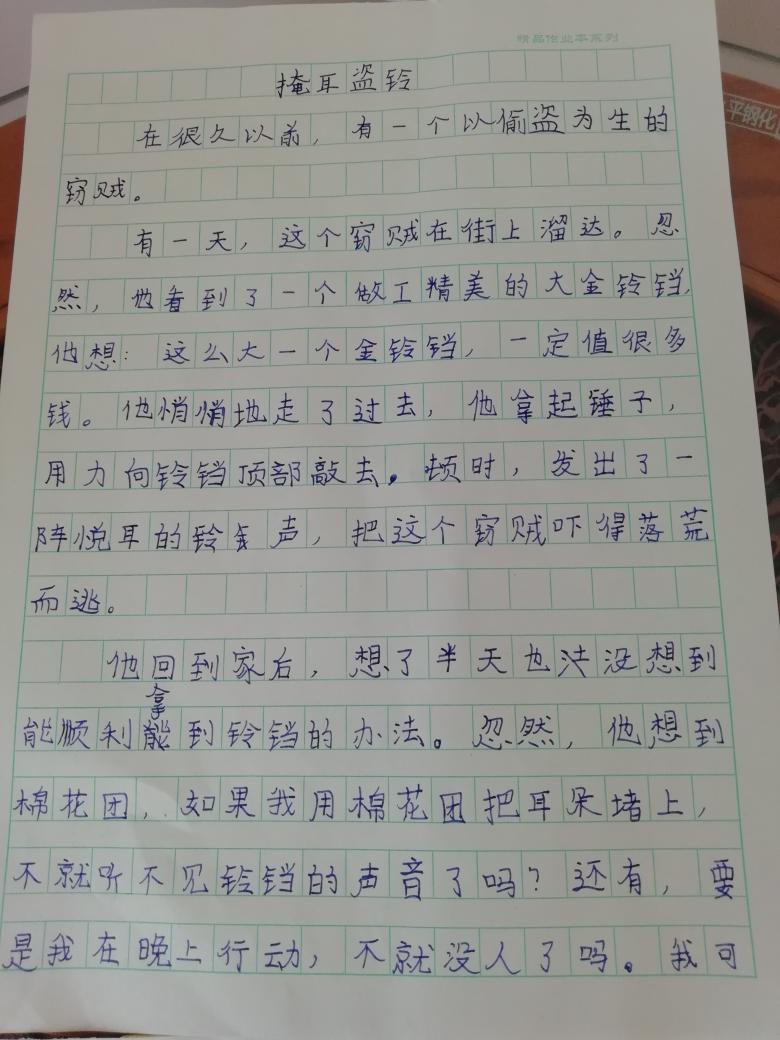 精品作业本系列
平钢化
掩耳盗铃
在很久以前，有一个以偷盗为生的
窃贼。
有一天，这个窃贼在街上溜达。忽
然，他看到了一个做工精美的大金铃铛，
他想：这么大一个金铃铛，一定值很多
钱。他悄悄地走了过去，他拿起锤子，
用力向铃铛顶部敲去。顿时，发出了一
阵悦耳的铃声，把这个窃贼吓得落荒
而逃。
他回到家后，想了半天也没想到
能顺利拿到铃铛的办法。忽然，他想到
棉花团，如果我用棉花团把耳朵堵上，
不就听不见铃铛的声音了吗？还有，要
是我在晚上行动，不就没人了吗。我可